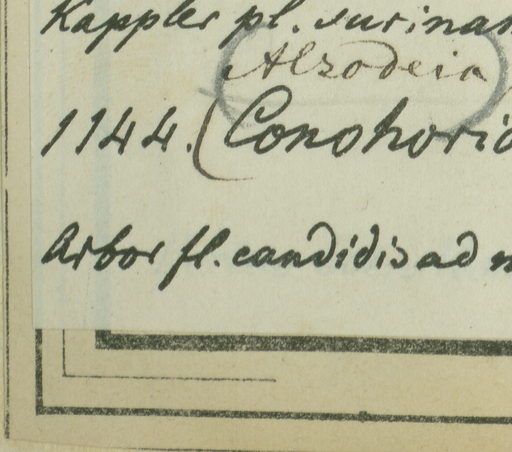 Kappler pl. surinam
Alsodeia
1144. (Conohorid
Arbor fl. candidis ad